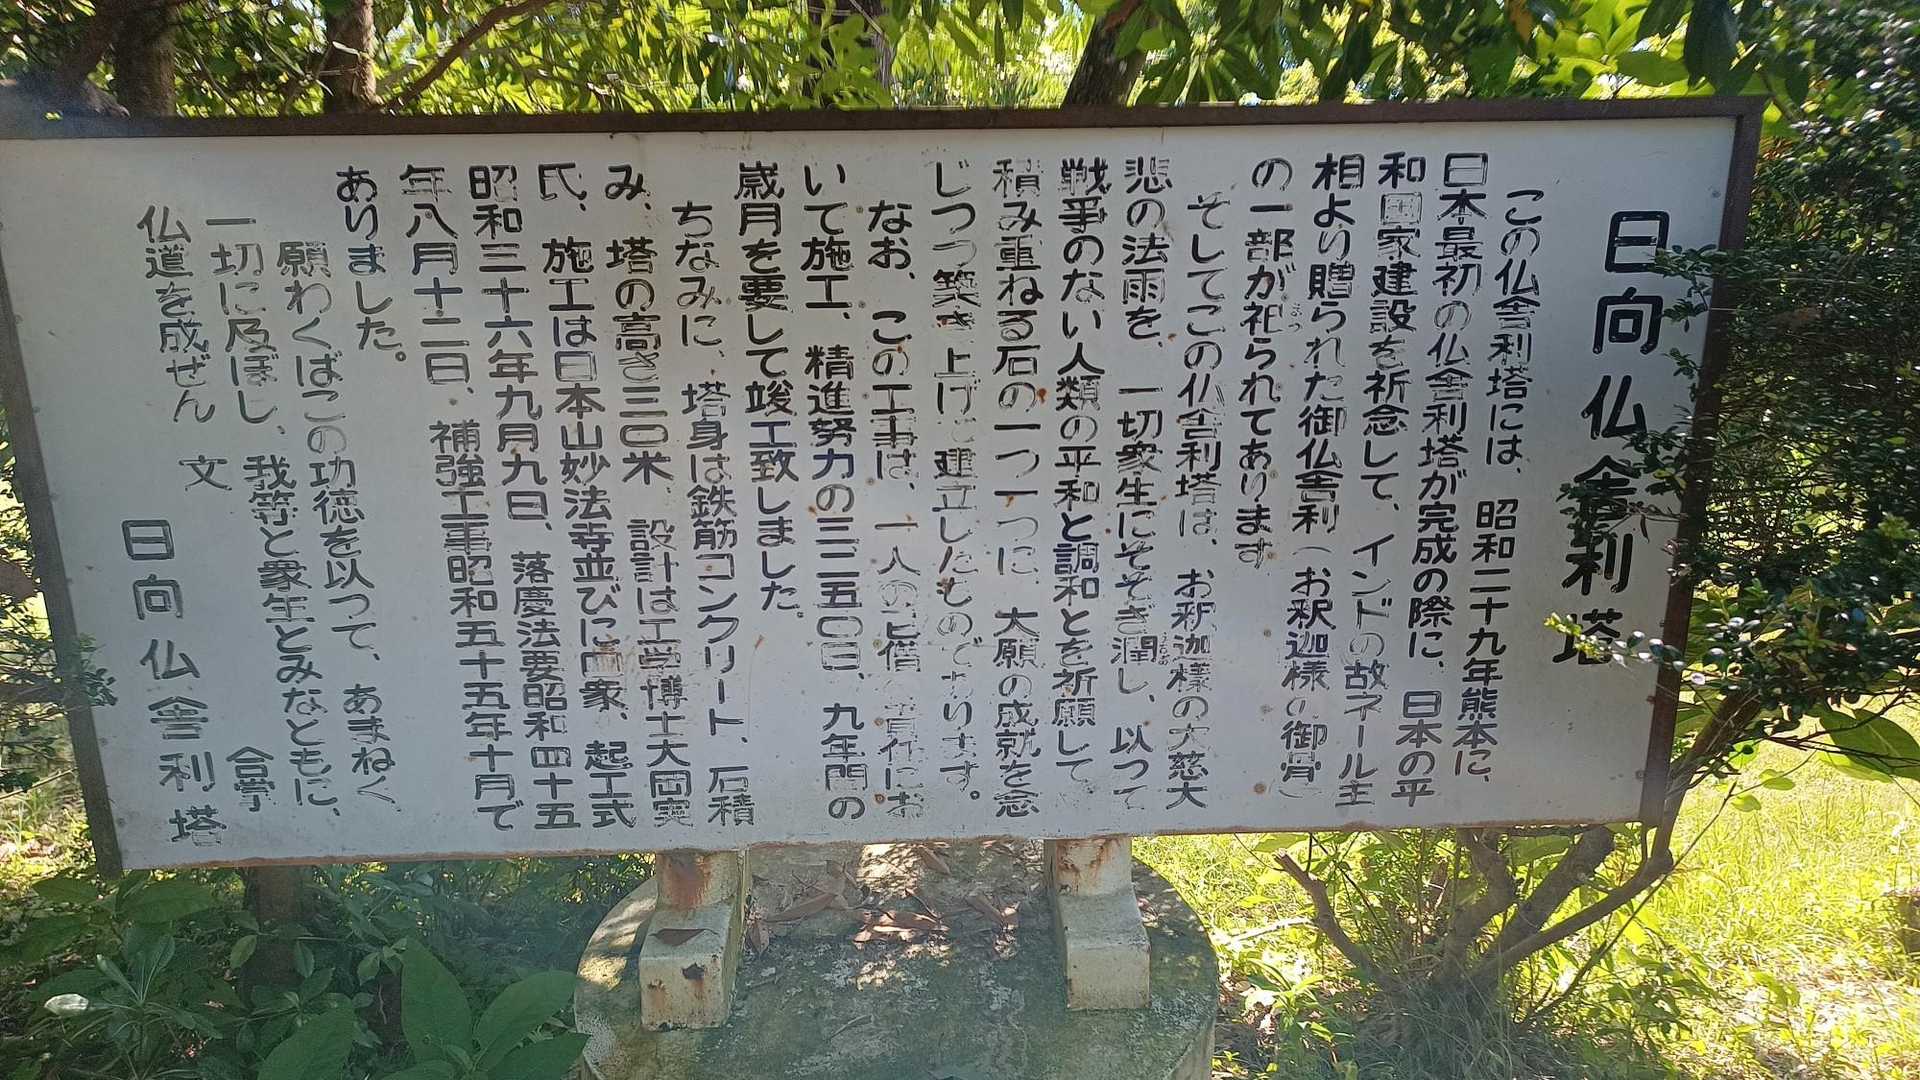 日向仏舎利塔
この仏舎利塔には、昭和二十九年熊本に、
日本最初の仏舎利塔が完成の際に、日本の平
和国家建設を祈念して、インドの故ネール主
相より贈られた御仏舎利(お釈迦様の御骨)
の一部が祀られてあります
そしてこの仏舎利塔は、お釈迦様の大慈大
悲の法雨を、一切衆生にそそぎ潤し、以つて
戦争のない人類の平和と調和とを祈願して
積み重ねる石の一つ一つに、大願の成就を念
じつつ築き上げて建立したものであります。
なお、この工事は、一人の
いて施工、精進努力の三二五〇日、九年間の
歳月を要して竣工致しました。
ちなみに、塔身は鉄筋コンクリート、石積
み、塔の高さ三〇米、設計は工学博士大岡実
氏、施工は日本山妙法寺並びに 衆、起工式
昭和三十六年九月九日、落慶法要昭和四十五
年八月十二日、補強工事昭和五十五年十月で
ありました。
願わくばこの功徳を以つて、あまねく
一切に及ぼし、我等と衆生とみなともに、
仏道を成ぜん 文 合掌
日向仏舎利塔